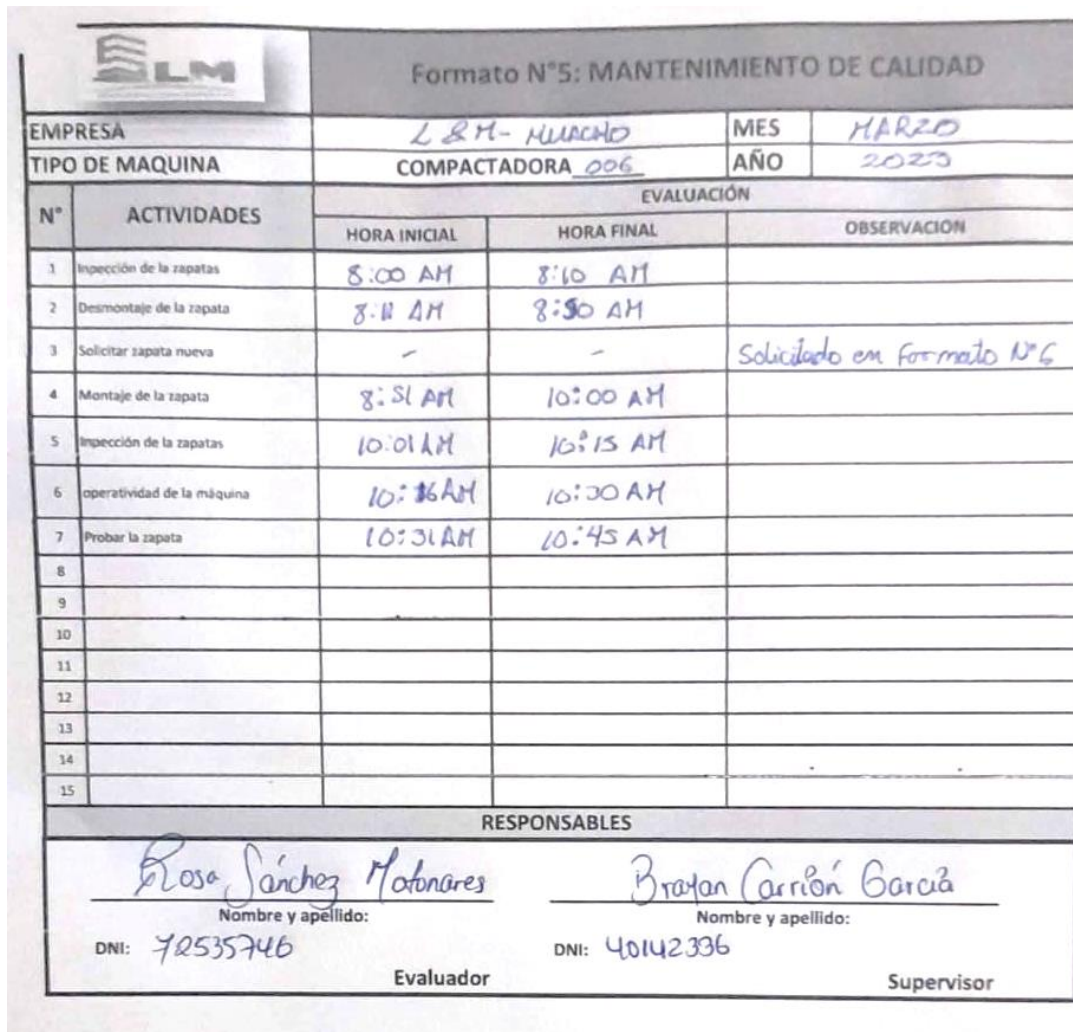 LM
Formato N°5: MANTENIMIENTO DE CALIDAD
EMPRESA L & M- HUACHO MES MARZO
TIPO DE MAQUINA COMPACTADORA 006 AÑO 2023
N° ACTIVIDADES EVALUACIÓN
HORA INICIAL HORA FINAL OBSERVACION
1 Inpección de la zapatas 8:00 AM 8:10 AM
2 Desmontaje de la zapata 8:11 AM 8:50 AM
3 Solicitar zapata nueva - - Solicitado en Formato N°6
4 Montaje de la zapata 8:51 AM 10:00 AM
5 Inpección de la zapatas 10:01 AM 10:15 AM
6 operatividad de la máquina 10:16 AM 10:30 AM
7 Probar la zapata 10:31 AM 10:45 AM
8
9
10
11
12
13
14
15
RESPONSABLES
Rosa Sánchez Brayan Carrión García
Nombre y apellido: Nombre y apellido:
DNI: 72535746 DNI: 40142336
Evaluador Supervisor